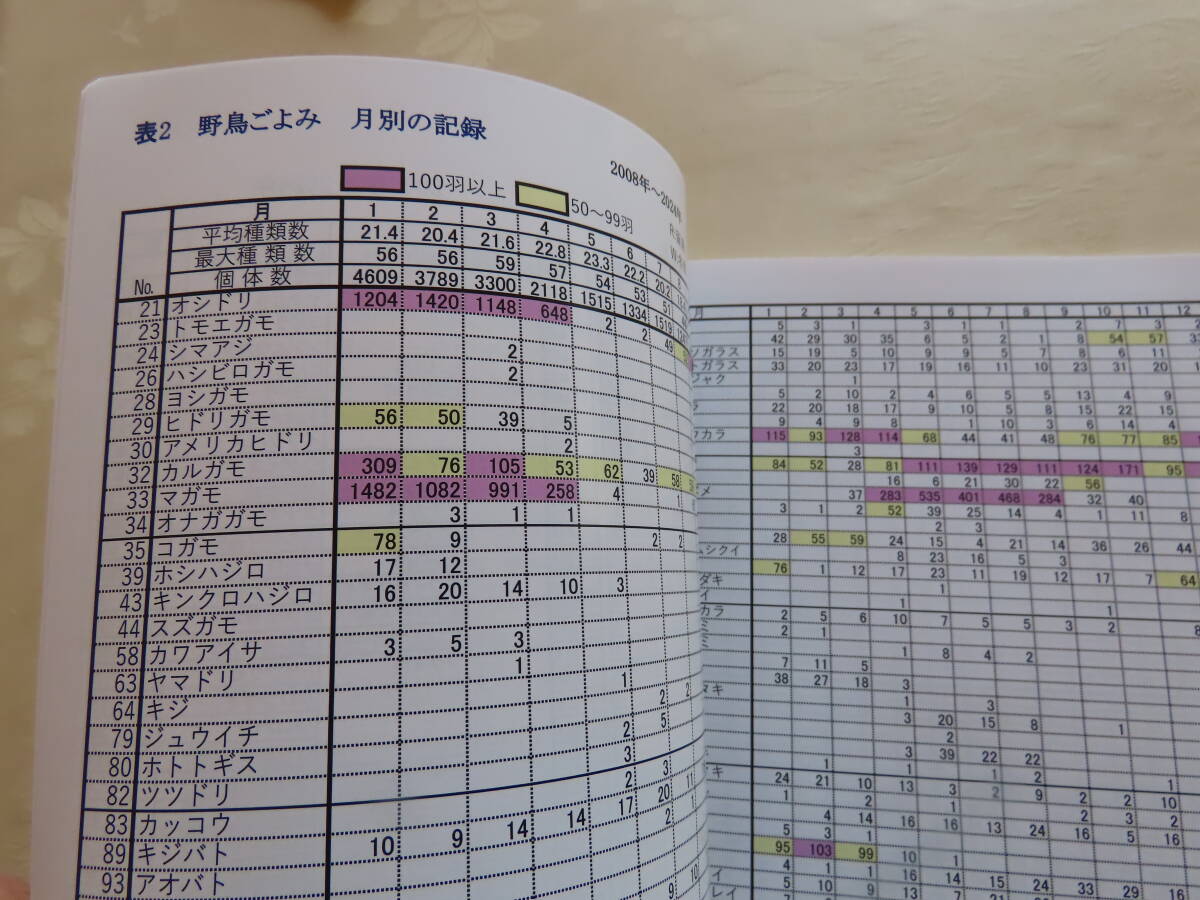 表2 野鳥ごよみ 月別の記録
2008年~2024年
100羽以上 50~99羽
No. 月 1 2 3 4 5 6 7
平均種類数 21.4 20.4 21.6 22.8 23.3 22.2 20.2
最大種類数 56 56 59 57 54 53 51
個体数 4609 3789 3300 2118 1515 1334 1519
21 オシドリ 1204 1420 1148 648 2 2 49
23 トモエガモ
24 シマアジ 2
26 ハシビロガモ 2
28 ヨシガモ
29 ヒドリガモ 56 50 39 5
30 アメリカヒドリ 2
32 カルガモ 309 76 105 53 62 39 58
33 マガモ 1482 1082 991 258 4 1
34 オナガガモ 3 1 1
35 コガモ 78 9 2 2
39 ホシハジロ 17 12
43 キンクロハジロ 16 20 14 10 3
44 スズガモ
58 カワアイサ 3 5 3
63 ヤマドリ 1 1
64 キジ 2 2
79 ジュウイチ 2 5
80 ホトトギス 3
82 ツツドリ 2 3
83 カッコウ 17 20 11
89 キジバト 10 9 14 14 2 1
93 アオバト 9 10
月 1 2 3 4 5 6 7 8 9 10 11 12
5 3 1 3 1 1 2 7 3
42 29 30 35 6 5 2 1 8 54 57
ソガラス 15 19 5 10 9 9 5 7 8 6 11
トガラス 33 20 23 17 19 16 11 10 23 31 20
ジャク 1
5 2 10 2 4 6 5 5 13 4 9
22 20 18 17 9 10 5 8 15 22 15
9 4 9 8 1 10 3 6 14 4
カラ 115 93 128 114 68 44 41 48 76 77 85
3
84 52 28 81 111 139 129 111 124 171 95
16 6 21 30 22 56
メ 37 283 535 401 468 284 32 40
3 1 2 52 39 25 14 4 1 11 8
2 3
28 55 59 24 15 4 21 14 36 26 44
ムシクイ 8 23 16 5 3
76 1 12 17 23 11 19 12 17 7 64
ダキ 1
イ 1 1
カラ 2 5 6 10 7 5 5 3 2 8
ミ 2 1
1 8 4 2
7 11 5
タキ 38 27 18 3
1 3
3 20 15 8 1
2
3 39 22 22
1 1 1 2
キ 24 21 10 13 3 2 9 2 2 10
1 2 1 2 3 2
4 14 16 16 13 24 16 5 16
5 3 1
95 103 99 10 1
4 1 1 16 14 15 24 33 29 16
レイ 5 10 9 13 7